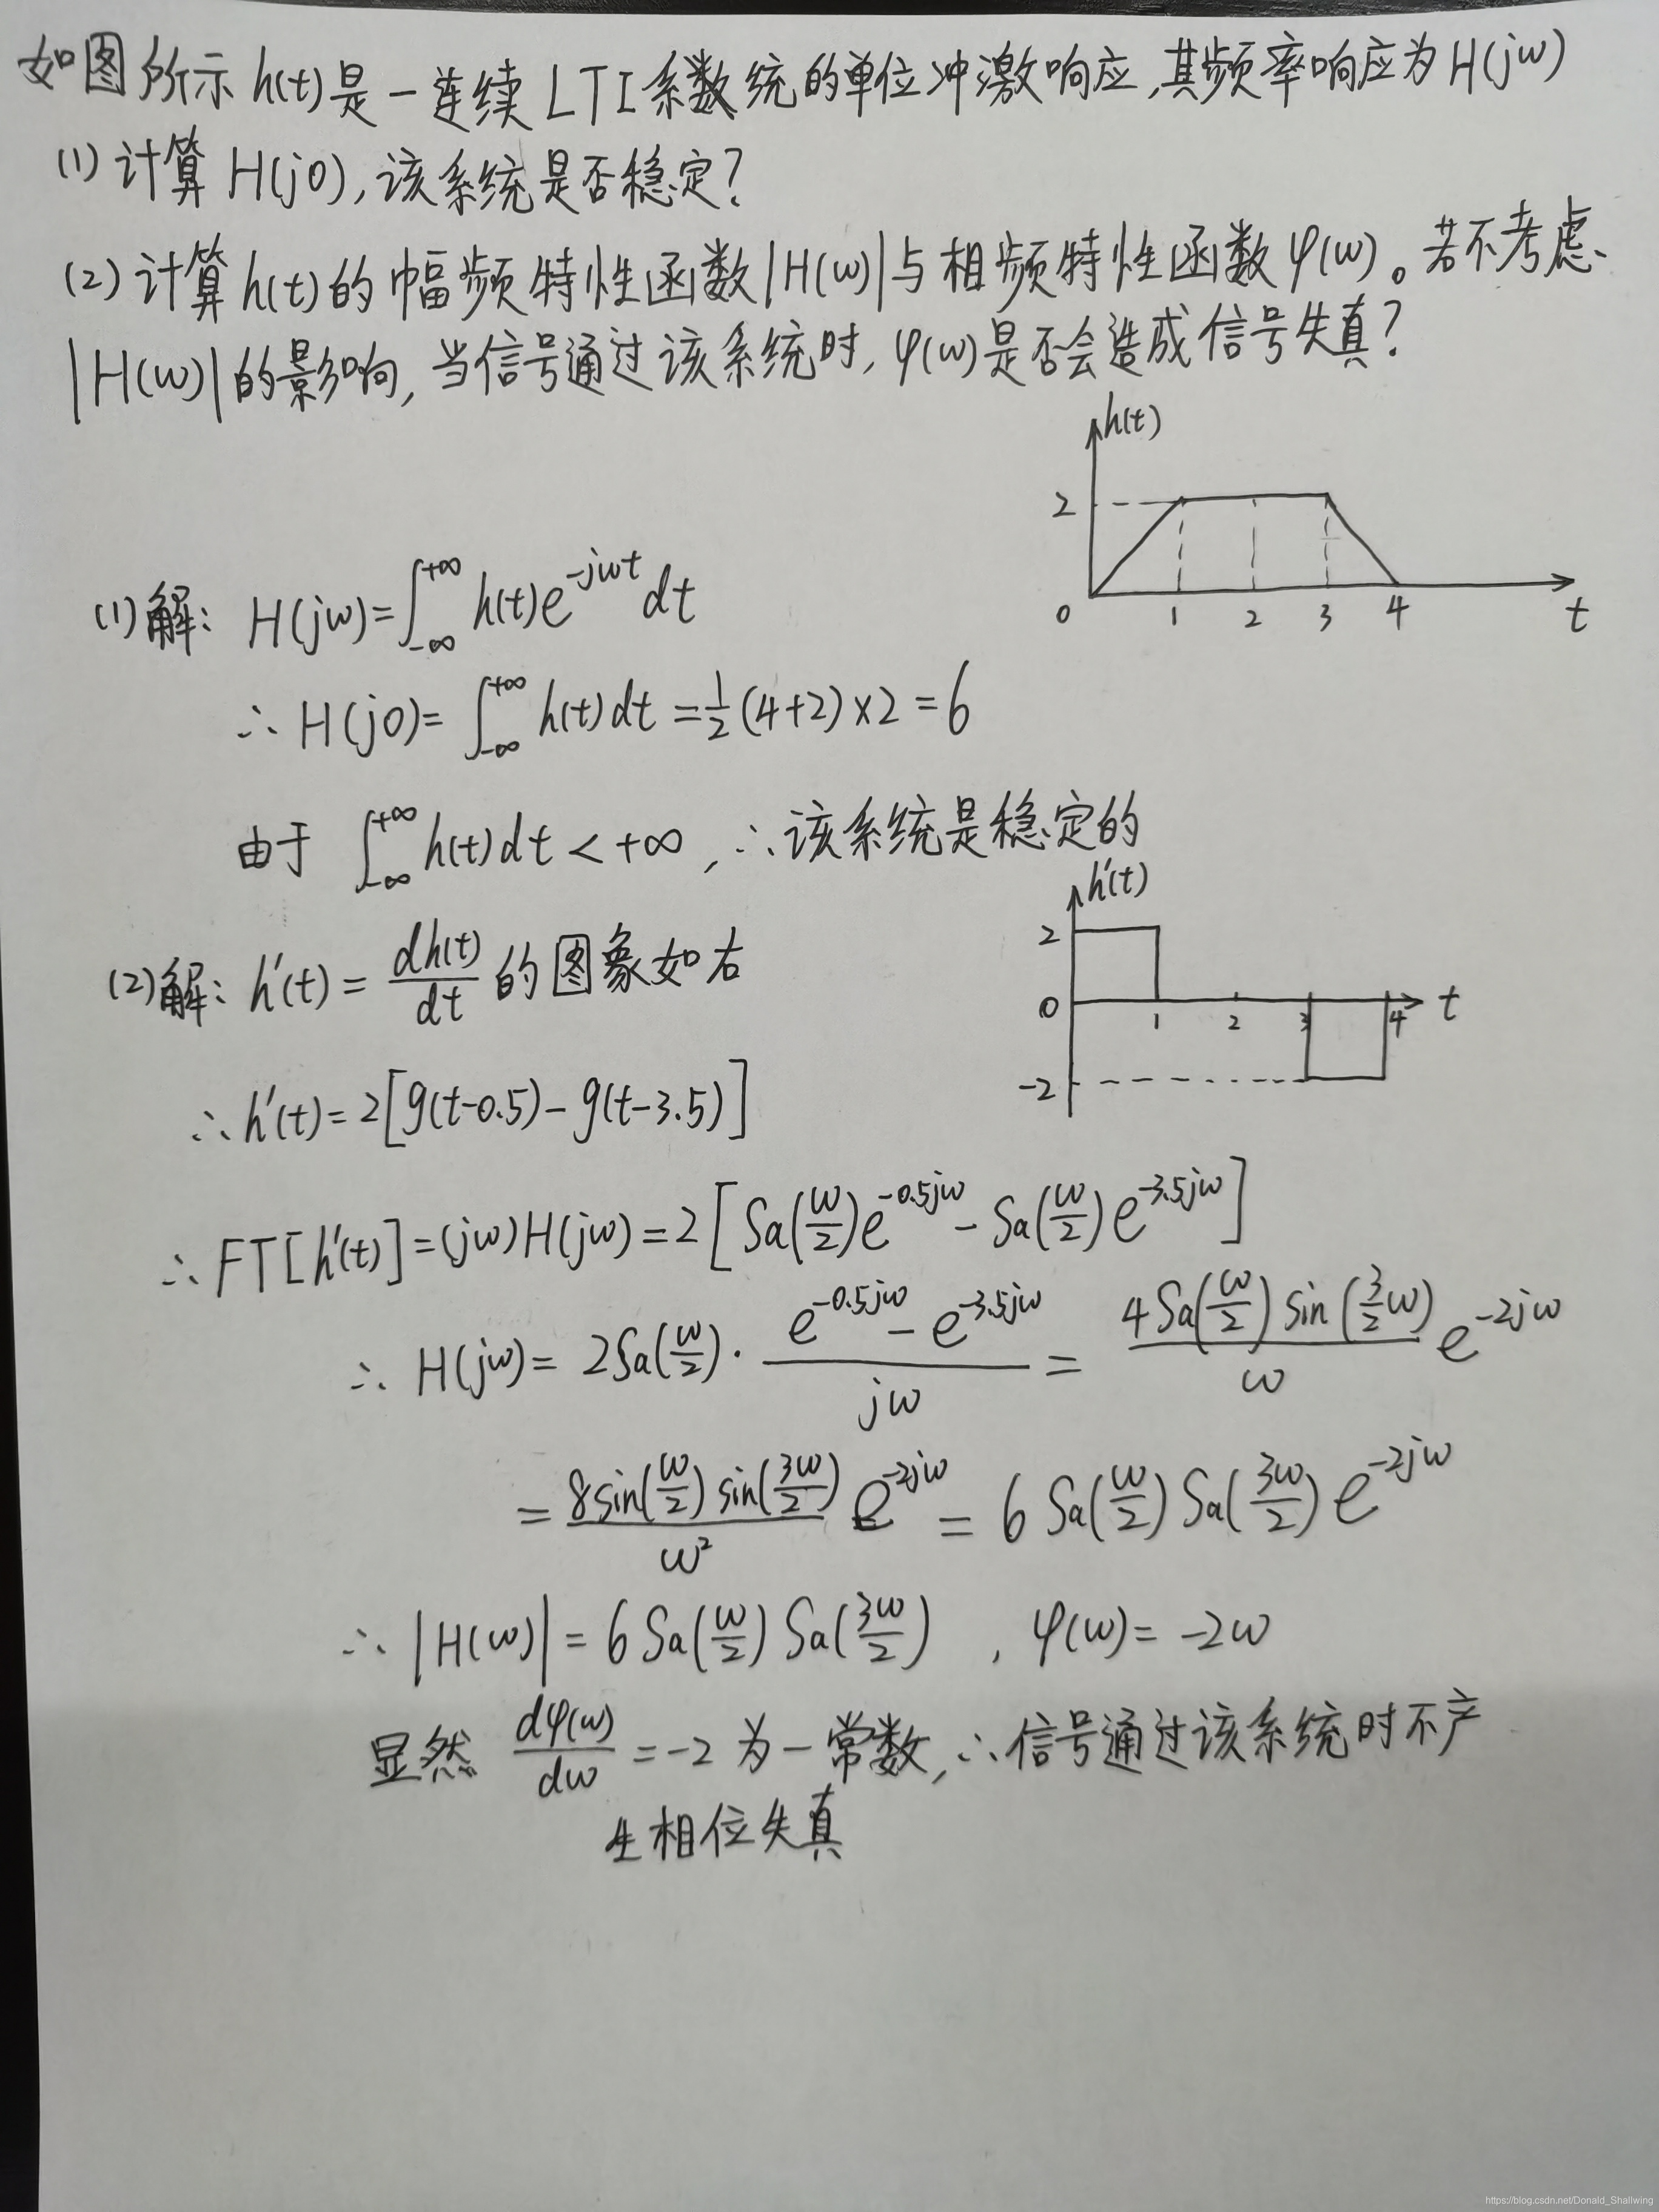 如图所示 h(t)是一连续 LTI系数统的单位冲激响应,其频率响应为 H(jω)
(1)计算 H(j0),该系统是否稳定?
(2)计算 h(t)的幅频特性函数|H(ω)|与相频特性函数 φ(ω)。若不考虑
|H(ω)|的影响,当信号通过该系统时,φ(ω)是否会造成信号失真?
h(t)
2
0 1 2 3 4 t
(1)解: H(jω)=∫_{-∞}^{+∞} h(t)e^{-jωt}dt
∴ H(j0)=∫_{-∞}^{+∞} h(t)dt=1/2(4+2)×2=6
由于 ∫_{-∞}^{+∞} h(t)dt<+∞,∴该系统是稳定的
h'(t)
2
0 1 2 3 4 t
-2
(2)解: h'(t)=dh(t)/dt 的图象如右
∴h'(t)=2[g(t-0.5)-g(t-3.5)]
∴FT[h'(t)]=(jω)H(jω)=2[Sa(ω/2)e^{-0.5jω}-Sa(ω/2)e^{-3.5jω}]
∴ H(jω)=2Sa(ω/2)·(e^{-0.5jω}-e^{-3.5jω})/jω=4Sa(ω/2)sin(3/2ω)/ω e^{-2jω}
=8sin(ω/2)sin(3ω/2)/ω² e^{-2jω}=6Sa(ω/2)Sa(3ω/2)e^{-2jω}
∴|H(ω)|=6Sa(ω/2)Sa(3ω/2),φ(ω)=-2ω
显然 dφ(ω)/dω=-2 为一常数,∴信号通过该系统时不产
生相位失真
https://blog.csdn.net/Donald_Shallwing